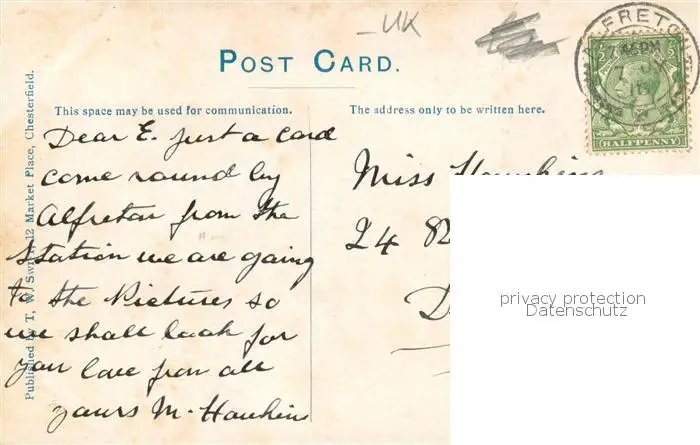 UK
ALFRETON
7 45 PM
POST CARD.
HALFPENNY
This space may be used for communication.
The address only to be written here.
Published by T. W. 12 Market Place, Chesterfield.
Dear E. just a card
come round by
Alfreton from the
Station we are going
to the Pictures so
we shall look for
you love from all
yours M. Hawkins
Miss
24
privacy protection
Datenschutz